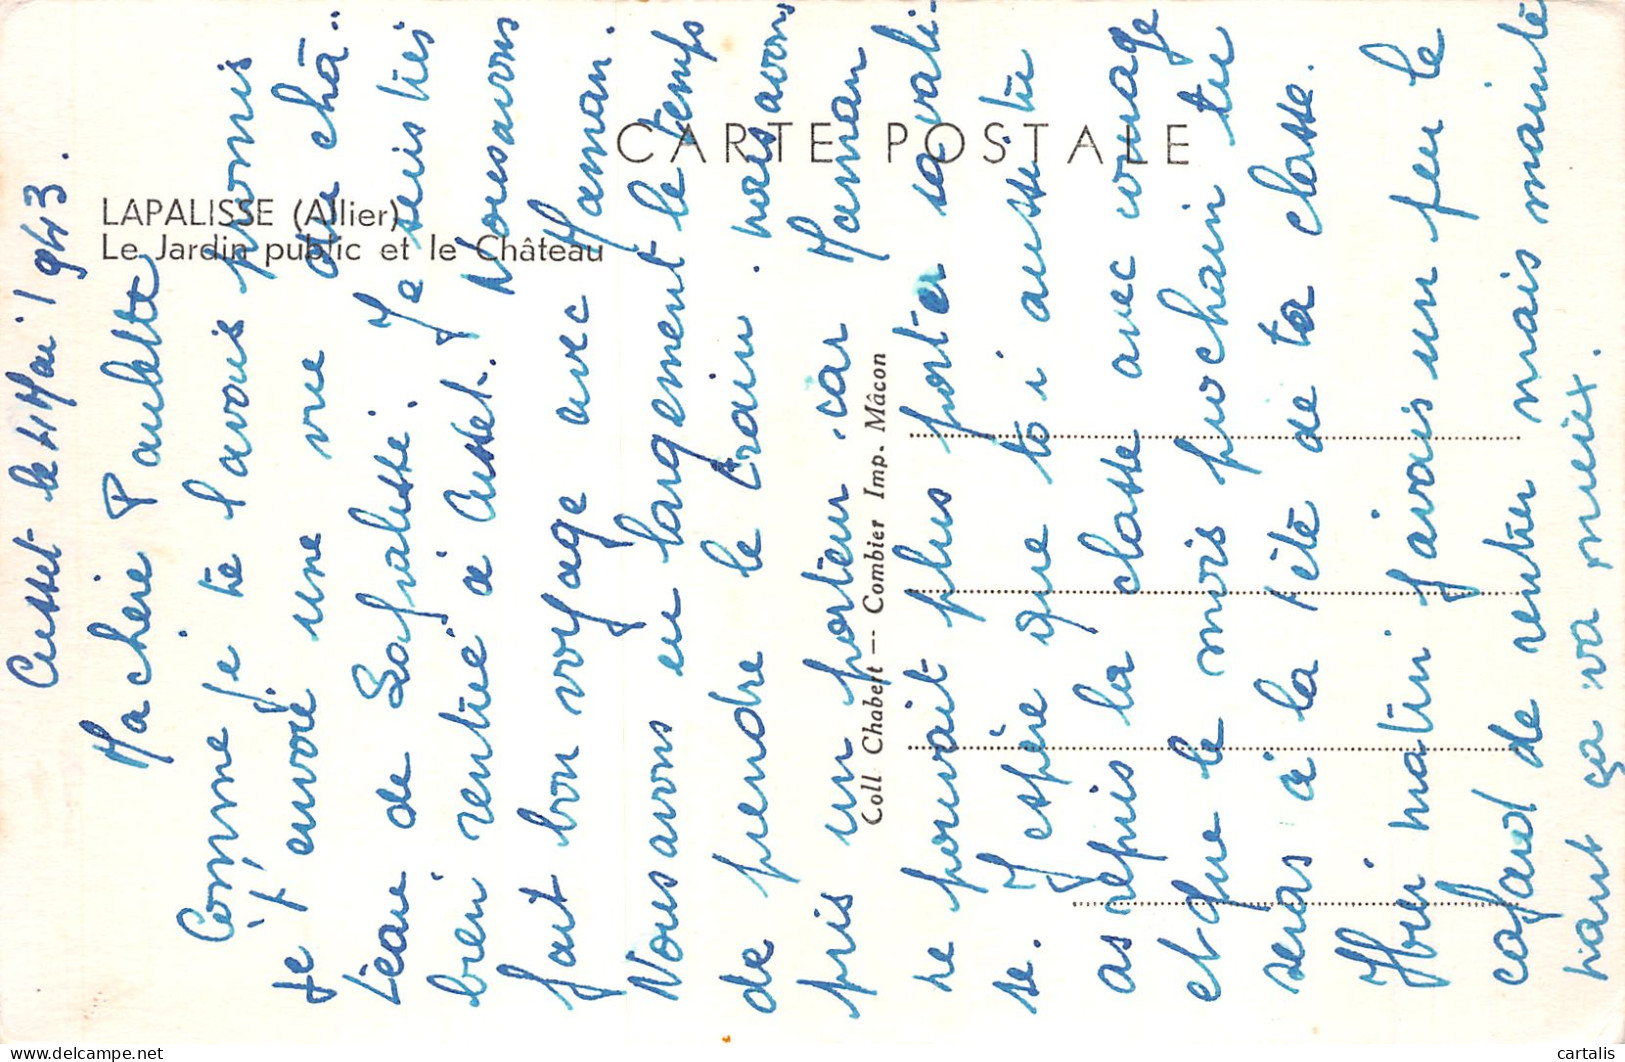 CARTE POSTALE
LAPALISSE (Allier)
Le Jardin public et le Château
Coll. Chabert — Combier Imp. Mâcon
Cusset le 4 Mai 1943.
Ma chérie Paulette
Comme je te l'avais promis
je t'envoie une vue du châ-
teau de Lapalisse. Je suis très
bien rentrée à Cusset. Nous avons
fait bon voyage avec Maman.
Nous avons eu largement le temps
de prendre le train. nous avons
pris un porteur. car Maman
ne pouvait plus porter sa vali-
se. J'espère que toi aussi tu
as repris la classe avec courage
et que le mois prochain tu
seras à la tête de ta classe.
Moi matin j'avais un peu le
cafard de rentrer mais mainte
nant ça va mieux.
cartalis